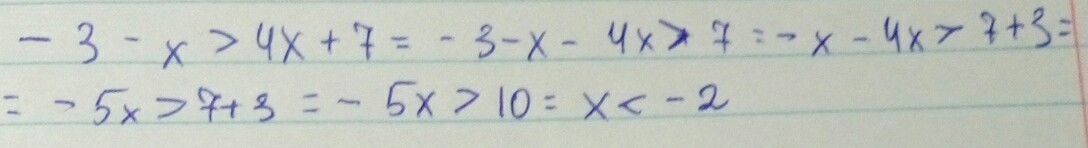 - 3 - x > 4x + 7 = - 3 - x - 4x > 7 = - x - 4x > 7 + 3 =
= - 5x > 7 + 3 = - 5x > 10 = x < - 2